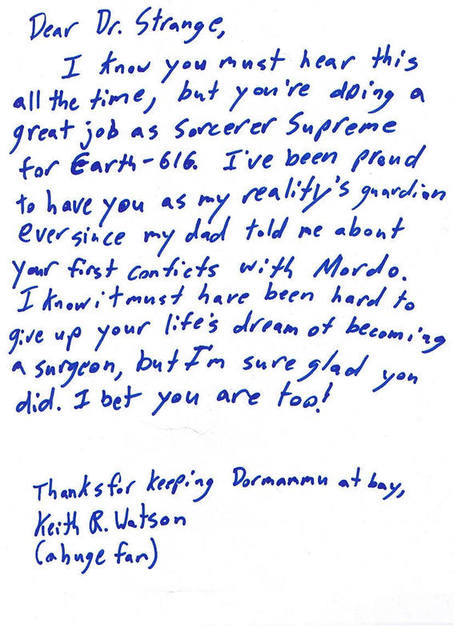 Dear Dr. Strange,
I know you must hear this
all the time, but you're doing a
great job as Sorcerer Supreme
for Earth-616. I've been proud
to have you as my reality's guardian
ever since my dad told me about
your first conficts with Mordo.
I know it must have been hard to
give up your life's dream of becoming
a surgeon, but I'm sure glad you
did. I bet you are too!
Thanks for keeping Dormanmu at bay,
Keith R. Watson
(a huge fan)